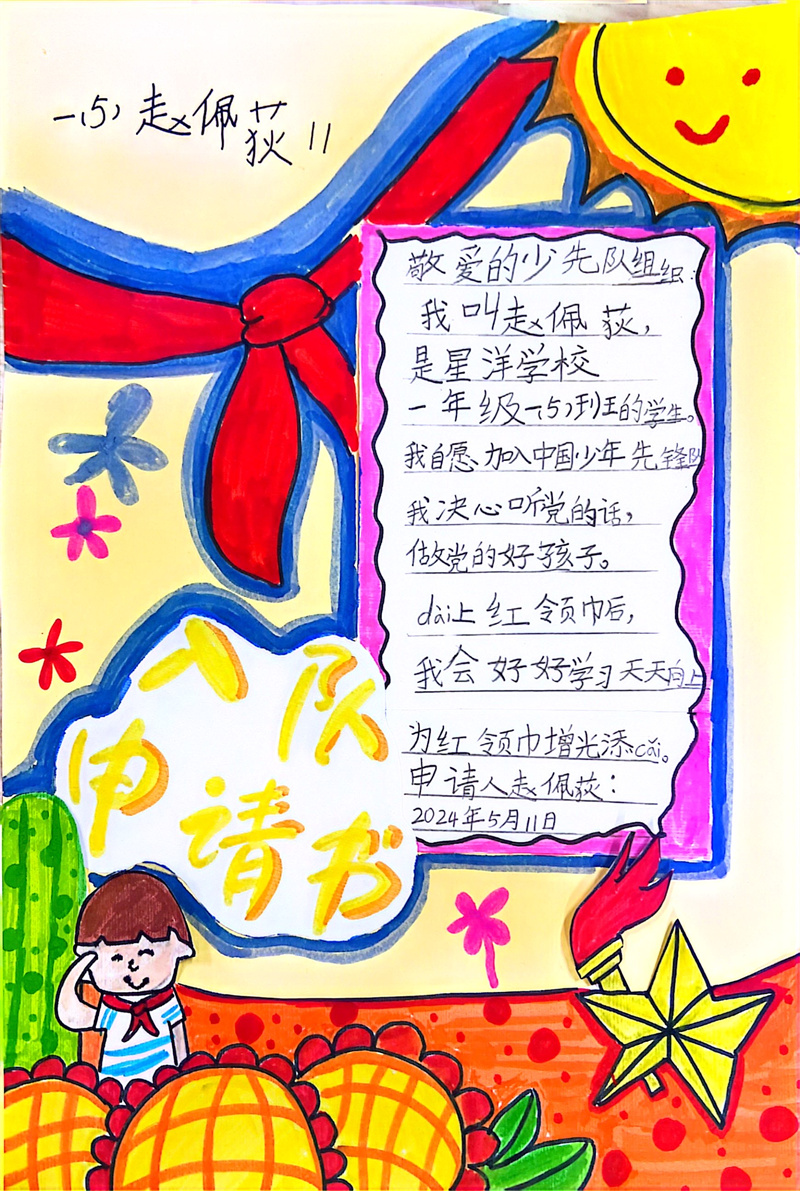 一(5) 赵佩荻 11
敬爱的少先队组织:
我叫赵佩荻,
是星洋学校
一年级一(5)班的学生。
我自愿加入中国少年先锋队
我决心听党的话,
做党的好孩子。
dài上红领巾后,
我会好好学习天天向上
为红领巾增光添cǎi。
申请人赵佩荻:
2024年5月11日
入队
申请书